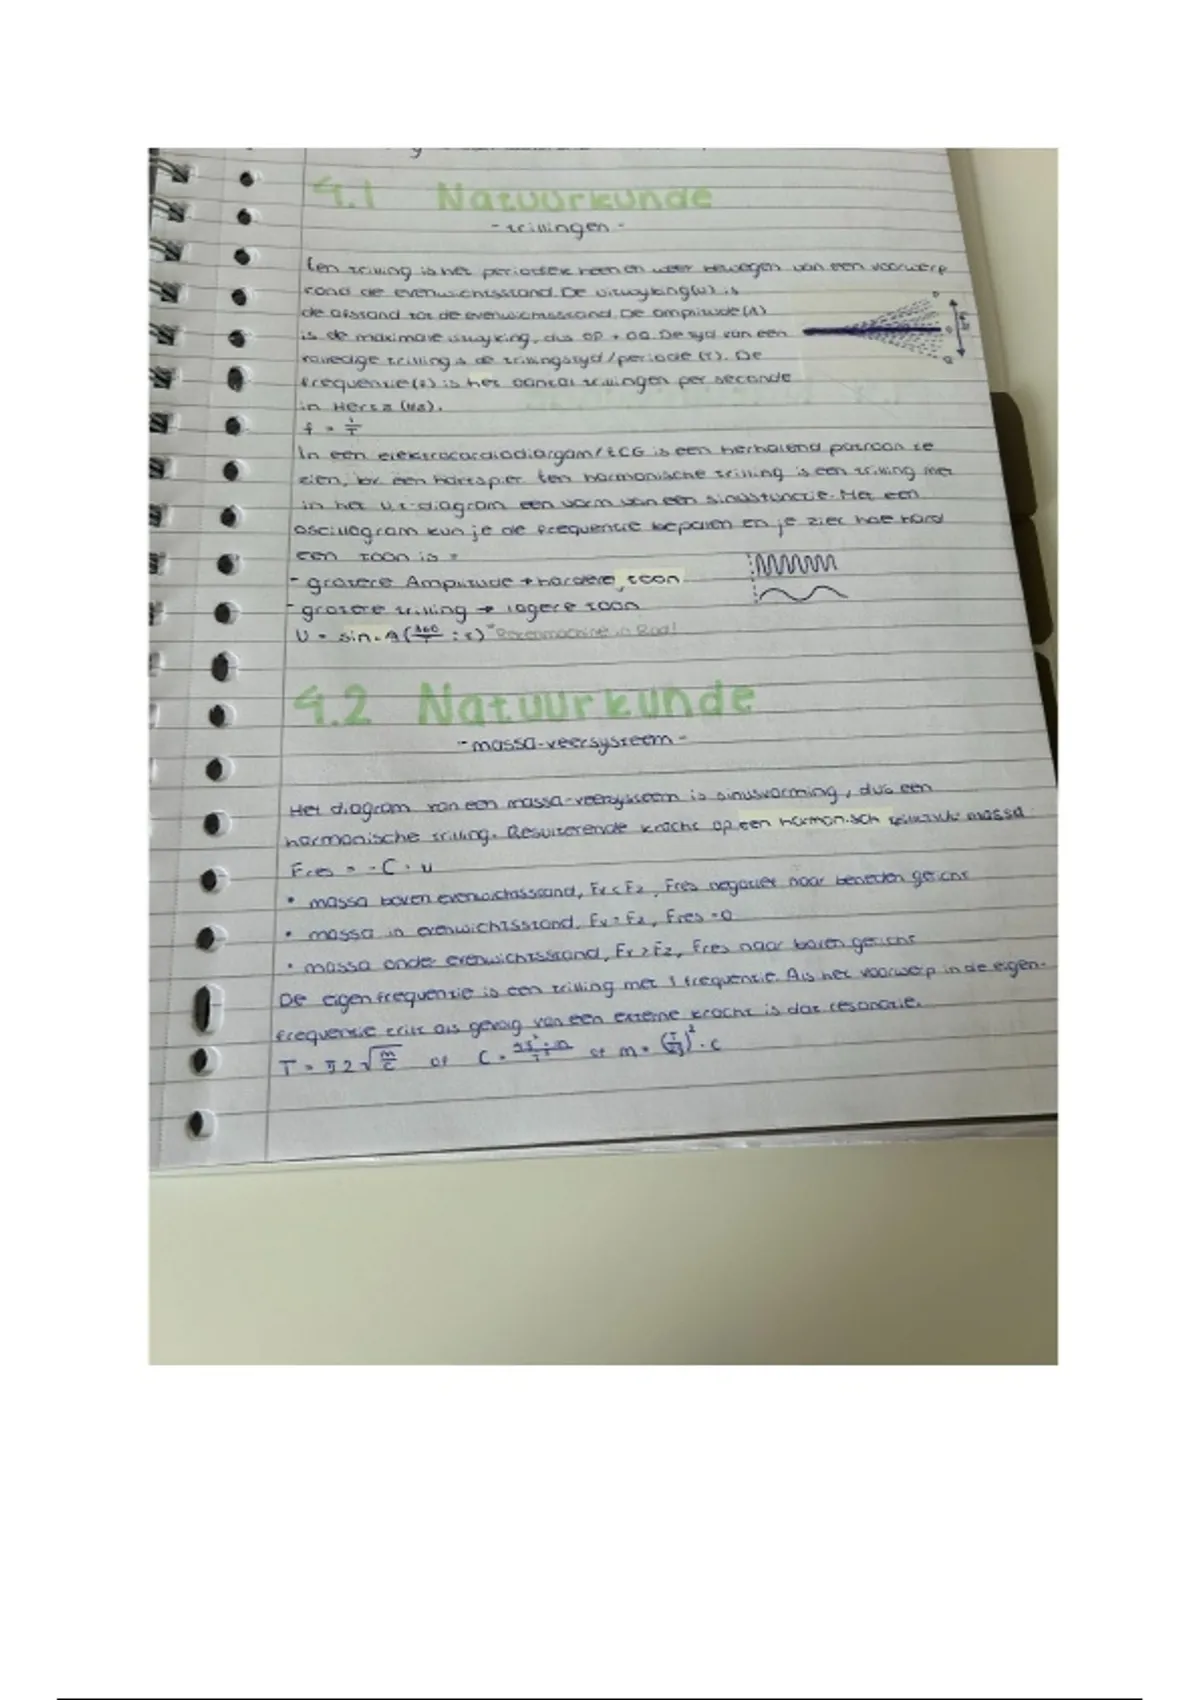 4.1 Natuurkunde
- trillingen -
Een trilling is het periodiek heen en weer bewegen van een voorwerp
rond de evenwichtsstand. De uitwijking(u) is
de afstand tot de evenwichtsstand. De amplitude (A)
is de maximale uitwijking, dus OP + OQ. De tijd van een
volledige trilling is de trillingstijd / periode (T). De
frequentie (f) is het aantal trillingen per seconde
in Hertz (Hz).
f = 1/T
In een elektrocardiodiargam / ECG is een herhalend patroon te
zien, bv. een hartspier. Een harmonische trilling is een trilling met
in het u,t-diagram een vorm van een sinusfunctie. Met een
oscillogram kun je de frequentie bepalen en je ziet hoe hard
een toon is =
- grotere Amplitude → hardere toon
- grotere trilling → lagere toon
U = sin · A (360/T : t) * Rekenmachine in Rad!
4.2 Natuurkunde
- massa-veersysteem -
Het diagram van een massa-veersysteem is sinusvorming, dus een
harmonische trilling. Resulterende kracht op een harmonisch massa
Fres = - C · u
• massa boven evenwichtsstand, Fv < Fz, Fres negatief naar beneden gericht
• massa in evenwichtsstand, Fv = Fz, Fres = 0
• massa onder evenwichtsstand, Fv > Fz, Fres naar boven gericht
De eigenfrequentie is een trilling met 1 frequentie. Als het voorwerp in de eigen-
frequentie trilt als gevolg van een externe kracht is dat resonatie.
T = π2√m/c of C = of m = · c